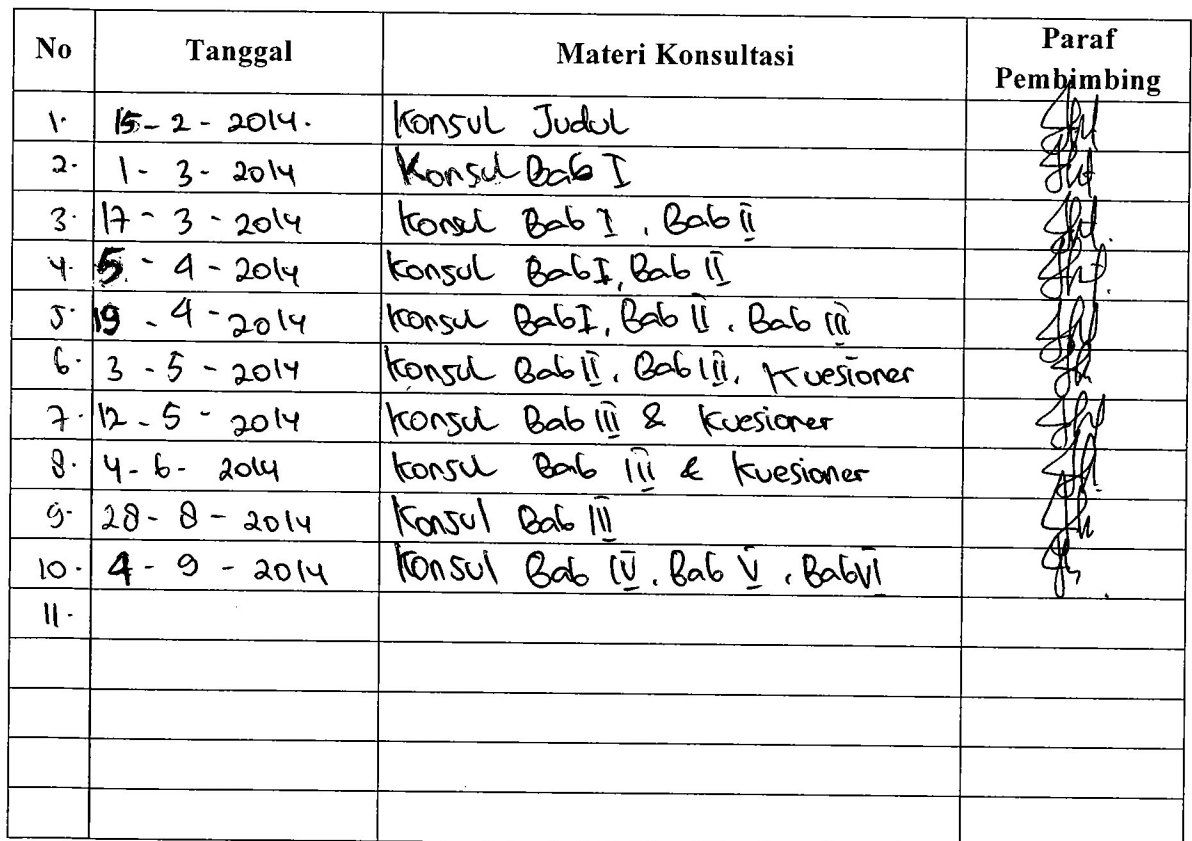 No Tanggal Materi Konsultasi Paraf Pembimbing
1. 15-2-2014. Konsul Judul
2. 1-3-2014 Konsul Bab I
3. 17-3-2014 Konsul Bab I, Bab II
4. 5-4-2014 Konsul Bab I, Bab II
5. 19-4-2014 Konsul Bab I, Bab II, Bab III
6. 3-5-2014 Konsul Bab II, Bab III, Kuesioner
7. 12-5-2014 Konsul Bab III & Kuesioner
8. 4-6-2014 Konsul Bab III & Kuesioner
9. 28-8-2014 Konsul Bab III
10. 4-9-2014 Konsul Bab IV, Bab V, Bab VI
11.